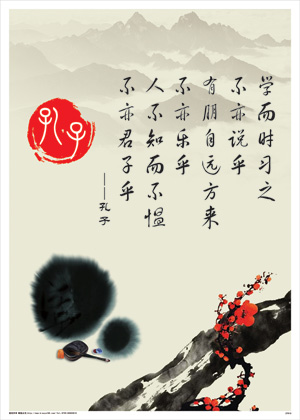 学而时习之
不亦说乎
有朋自远方来
不亦乐乎
人不知而不愠
不亦君子乎
——孔子
孔子